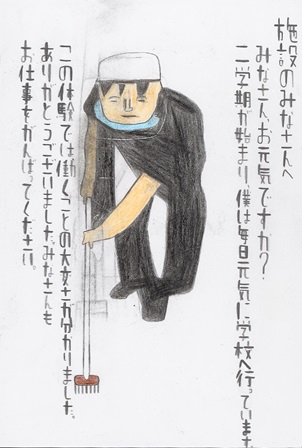 施設のみなさんへ
みなさん、お元気ですか？
二学期が始まり、僕は毎日元気に学校へ行っています。
この体験では働くことの大変さが分かりました。
ありがとうございました。みなさんも
お仕事をがんばってください。